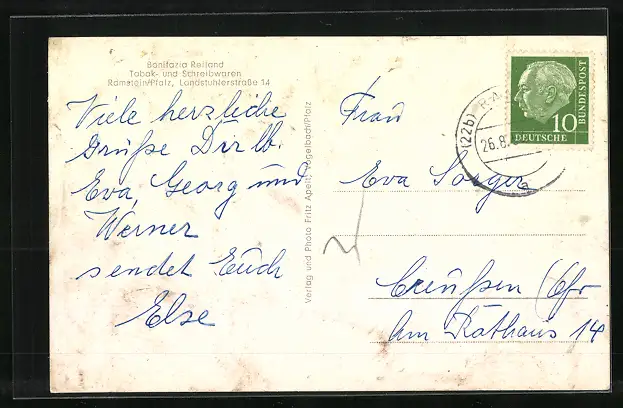 Bonifazia Relland
Tabak- und Schreibwaren
Ramstein/Pfalz, Landstuhlerstraße 14
Viele herzliche
Grüße Dir lb.
Eva, Georg und
Werner
sendet Euch
Else
Verlag und Photo Fritz Apelt, Vogelbach/Pfalz
DEUTSCHE
BUNDESPOST
10
(22b) RA
26.8.
a
Frau
Eva Sorger
Creußen (Ofr
Am Rathaus 14